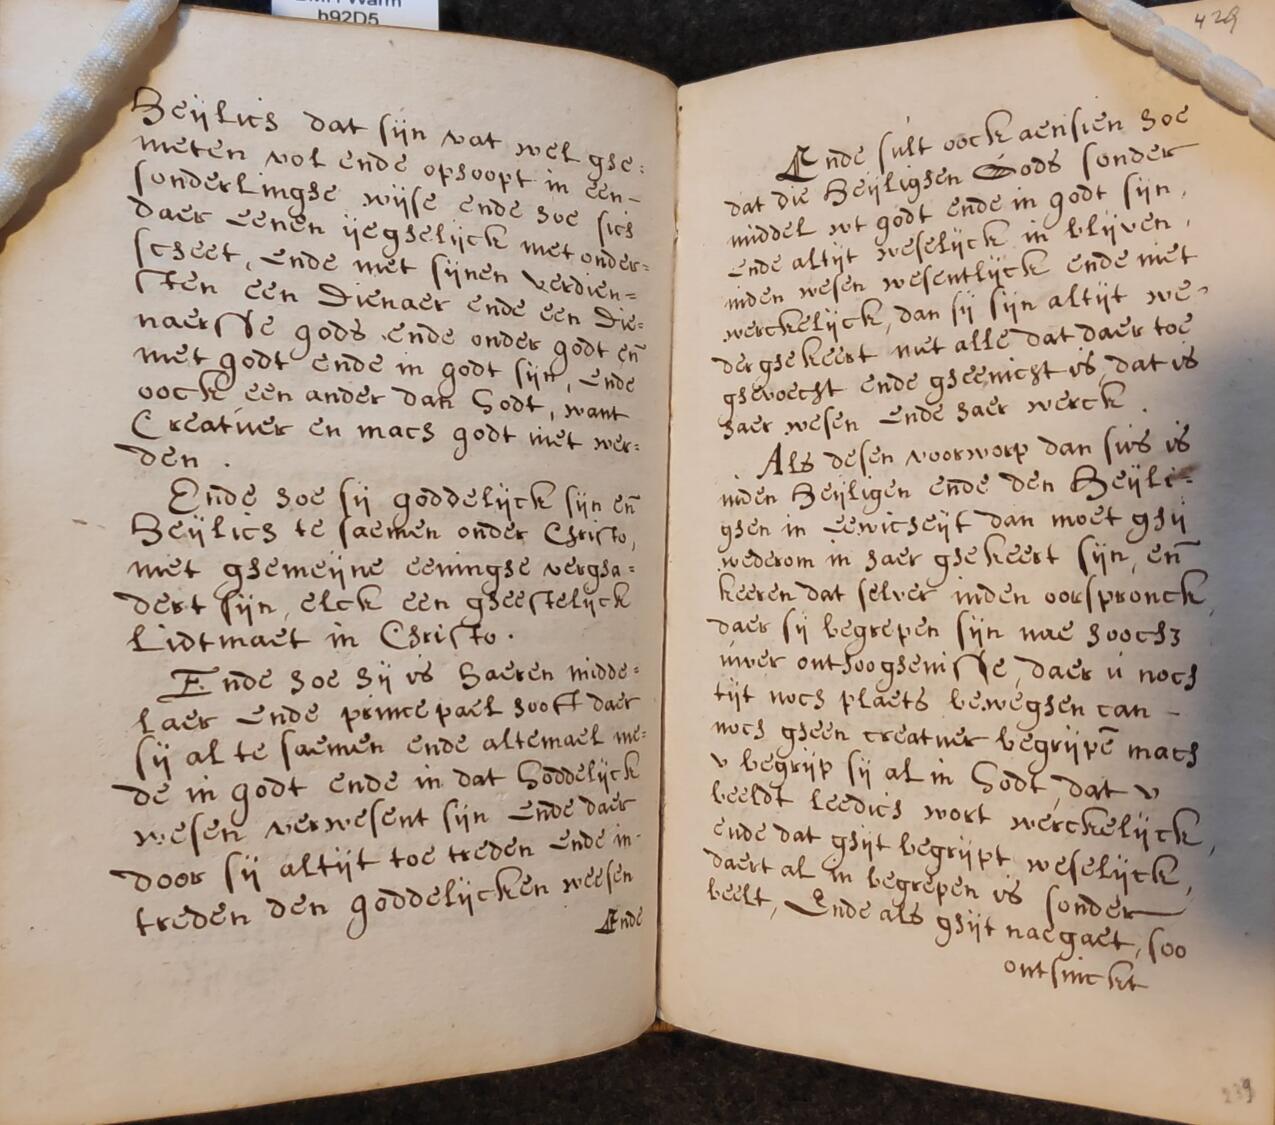 BMH Warm
h92D5
Heijlich dat sijn vat wel ghe:
meten vol ende ophoopt in een-
sonderlinghe wijse ende hoe sich
daer eenen ijeghelijck met onder=
scheet, ende met sijnen verdien=
sten een Dienaer ende een Die=
naersse gods ende onder godt en̄
met godt ende in godt sijn, ende
oock een ander dan Godt, want
Creatuer en mach godt niet wer=
den.
Ende hoe sij goddelijck sijn en̄
Heijlich te saemen onder Christo,
met ghemeijne eeninghe vergha=
dert sijn, elck een gheestelijck
Lidtmaet in Christo.
Ende hoe hij is haeren midde=
laer ende princepael hooft daer
sij al te saemen ende altemael me=
de in godt ende in dat Goddelijck
wesen verwesent sijn ende daer
door sij altijt toe treden ende in-
treden den goddelijcken weesen
Ende
429
Ende sult oock aensien hoe
dat die Heijlighen Gods sonder
middel wt godt ende in godt sijn,
ende altijt weselijck in blijven,
inden wesen wesentlijck ende niet
werckelijck, dan sij sijn altijt we-
der ghekeert met alle dat daer toe
ghevoecht ende gheenicht is, dat is
haer wesen ende haer werck.
Als desen voorworp dan sus is
inden Heijligen ende den Heijli=
ghen in eewicheijt dan moet ghij
wederom in haer ghekeert sijn, en̄
keeren dat selver inden oorspronck,
daer sij begrepen sijn nae hoochz
uwer onthooghenisse, daer u noch
tijt noch plaets beweghen can -
noch gheen creatuer begrijpē mach
v begrijp sij al in Godt, dat v
beeldt leedich wort werckelijck,
ende dat ghijt begrijpt weselijck,
daert al in begrepen is sonder
beelt, Ende als ghijt naegaet, soo
ontsinckt
239